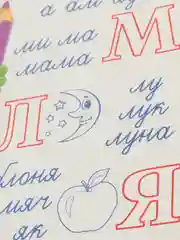 а ам
ми ма
мама
М
Л
лу
лук
луна
блоня
мяч
як
Я